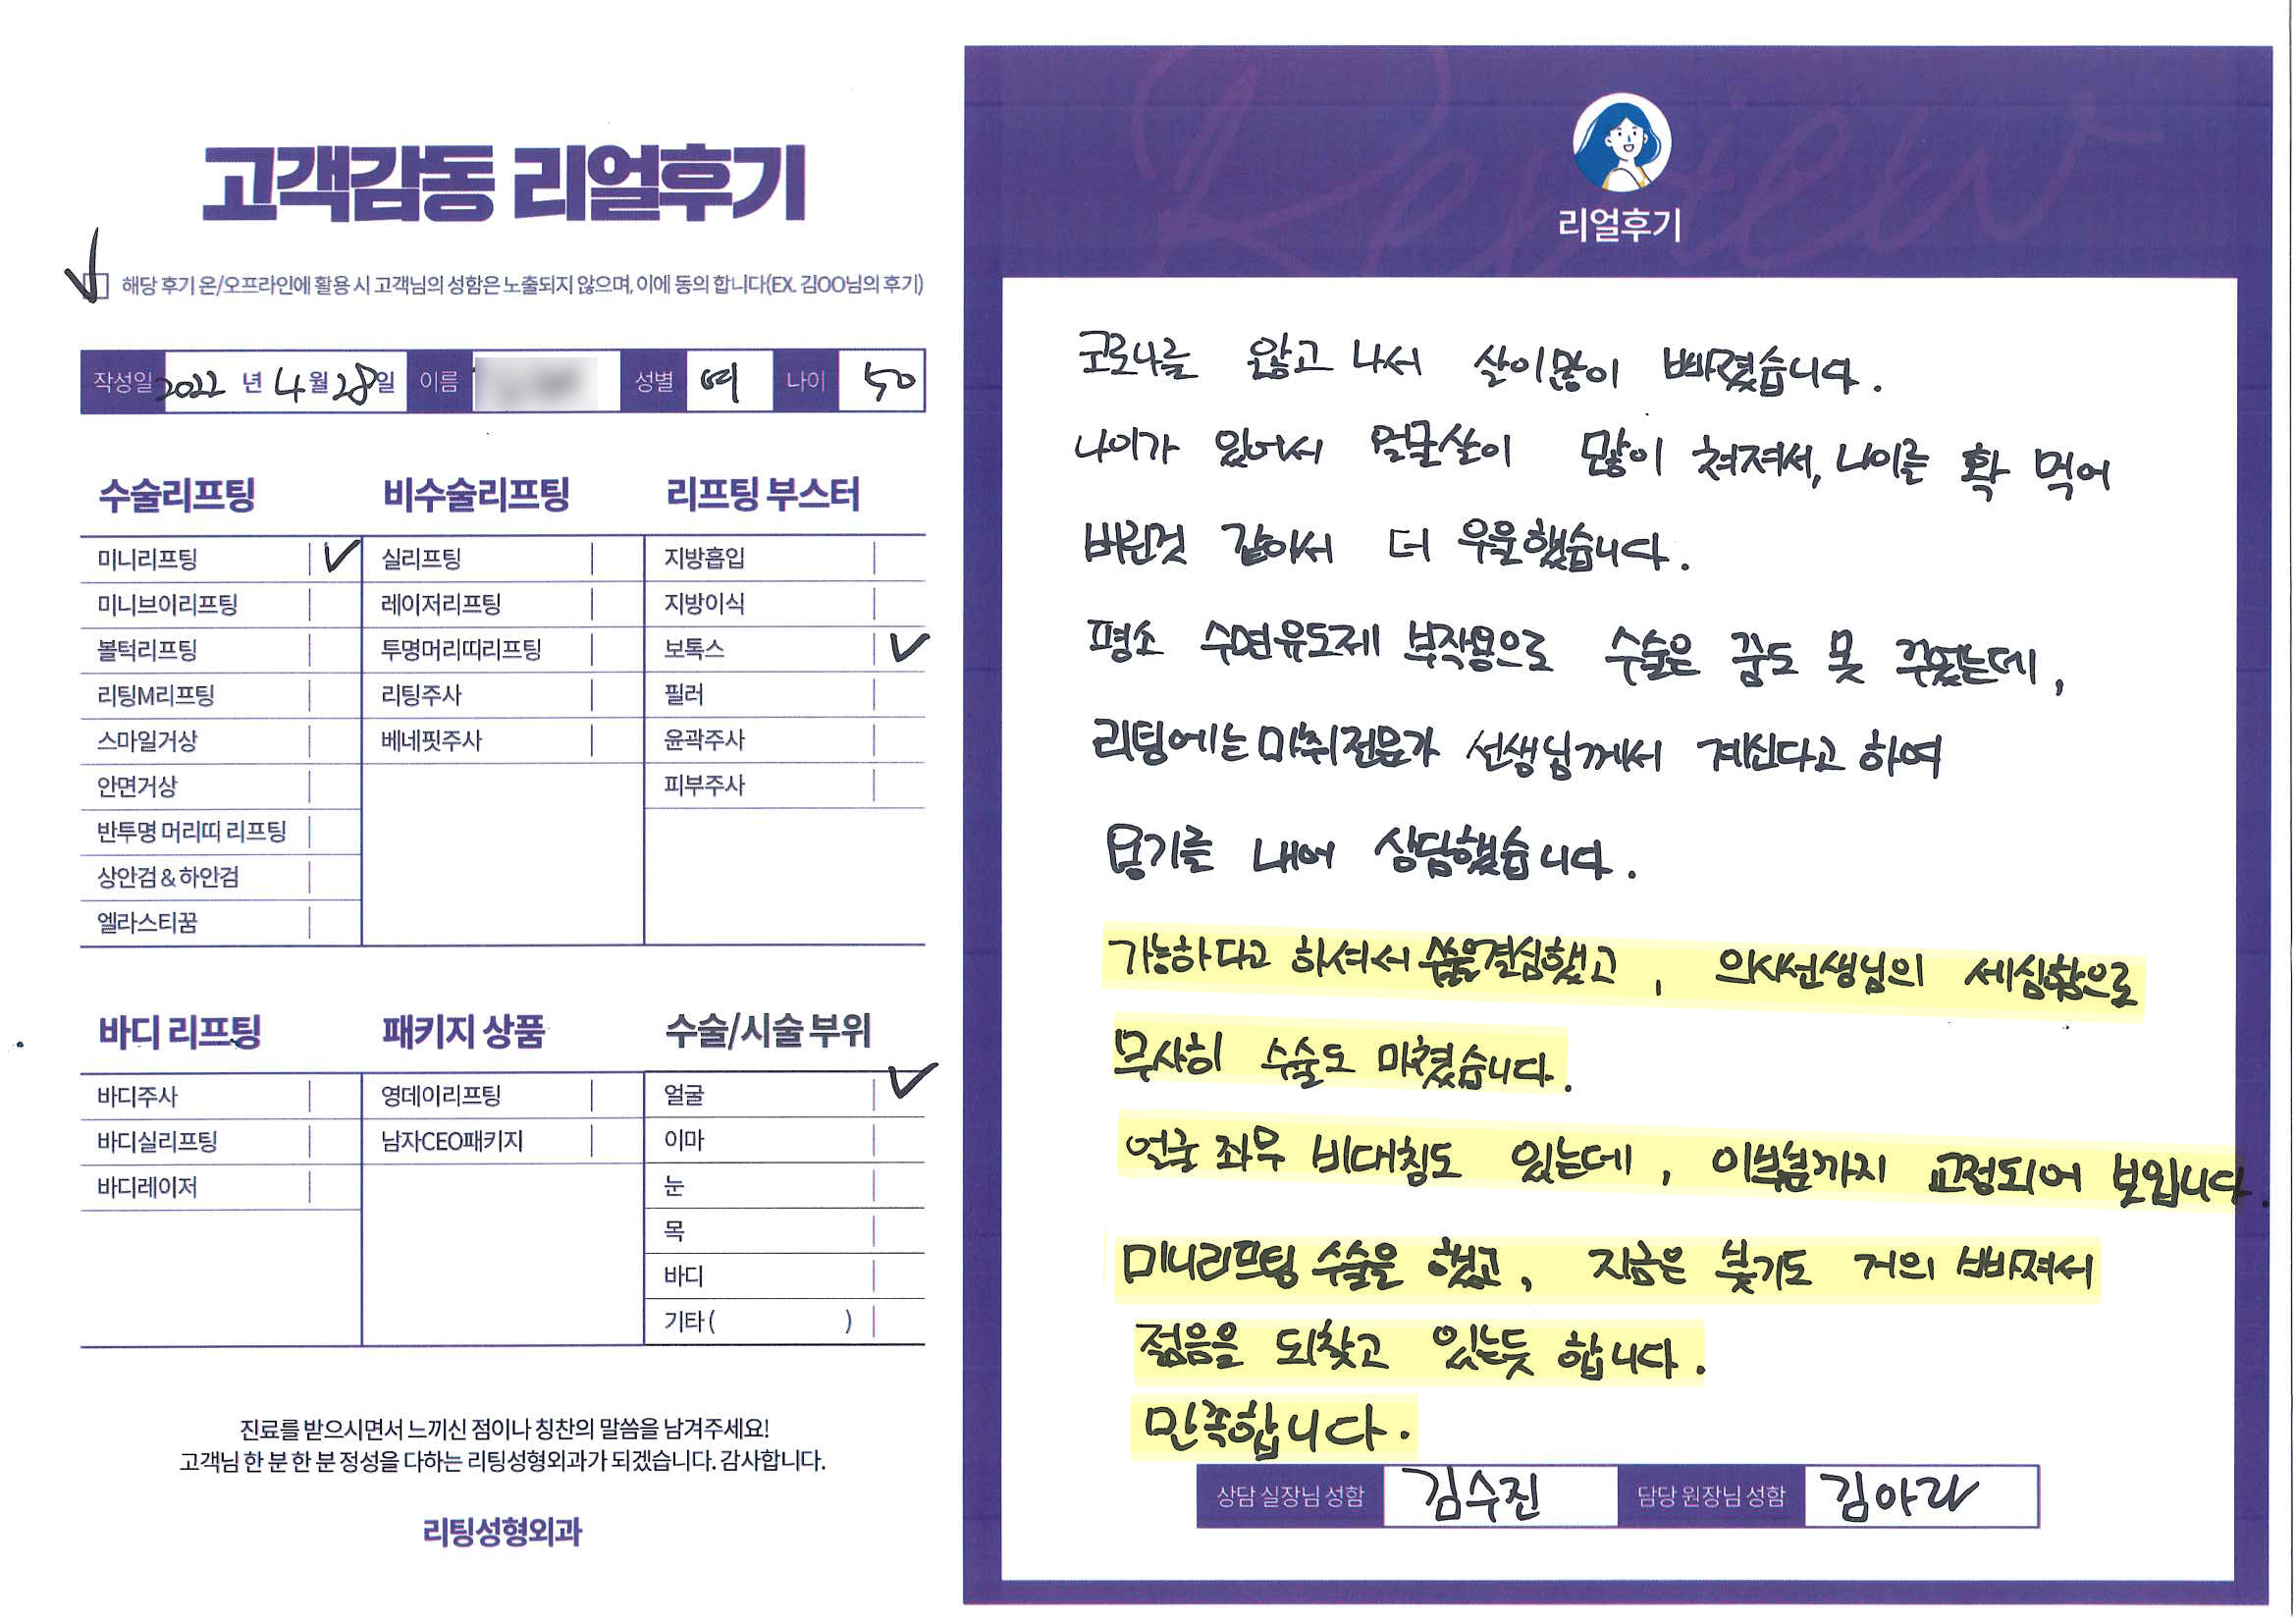 고객감동 리얼후기
해당 후기 온/오프라인에 활용 시 고객님의 성함은 노출되지 않으며, 이에 동의 합니다(EX. 김OO님의 후기)
작성일 2022 년 4월 28일 이름 성별 여 나이 50
수술리프팅
미니리프팅
미니브이리프팅
볼턱리프팅
리팅M리프팅
스마일거상
안면거상
반투명 머리띠 리프팅
상안검 & 하안검
엘라스티꿈
비수술리프팅
실리프팅
레이저리프팅
투명머리띠리프팅
리팅주사
베네핏주사
리프팅 부스터
지방흡입
지방이식
보톡스
필러
윤곽주사
피부주사
바디 리프팅
바디주사
바디실리프팅
바디레이저
패키지 상품
영데이리프팅
남자CEO패키지
수술/시술 부위
얼굴
이마
눈
목
바디
기타 ( )
진료를 받으시면서 느끼신 점이나 칭찬의 말씀을 남겨주세요!
고객님 한 분 한 분 정성을 다하는 리팅성형외과가 되겠습니다. 감사합니다.
리팅성형외과
Review
리얼후기
코로나를 앓고 나서 살이많이 빠졌습니다.
나이가 있어서 얼굴살이 많이 쳐져서, 나이를 확 먹어
버린것 같아서 더 우울했습니다.
평소 수면유도제 부작용으로 수술은 꿈도 못 꾸었는데,
리팅에는 마취전문가 선생님께서 계신다고 하여
용기를 내어 상담했습니다.
가능하다고 하셔서 수술을결심했고, 의사선생님의 세심함으로
무사히 수술도 마쳤습니다.
얼굴 좌우 비대칭도 있는데, 이부분까지 교정되어 보입니다.
미니리프팅 수술을 했고, 지금은 붓기도 거의 빠져서
젊음을 되찾고 있는듯 합니다.
만족합니다.
상담 실장님 성함 김수진 담당 원장님 성함 김아라